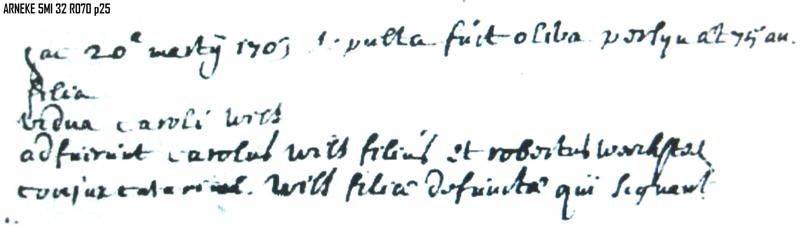 ARNEKE 5MI 32 R070 p25
hac 20ª martÿ 1705 sepulta fuit oliva persyn æt 75 an.
filia
vidua caroli wils
adfuerunt carolus wils filius et robertus
conjux catarinæ wils filiæ defunctæ qui signant